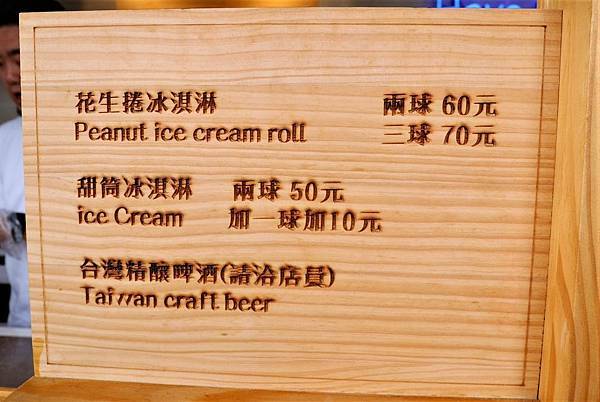 花生捲冰淇淋 兩球 60元
Peanut ice cream roll 三球 70元
甜筒冰淇淋 兩球 50元
ice Cream 加一球加10元
台灣精釀啤酒(請洽店員)
Taiwan craft beer